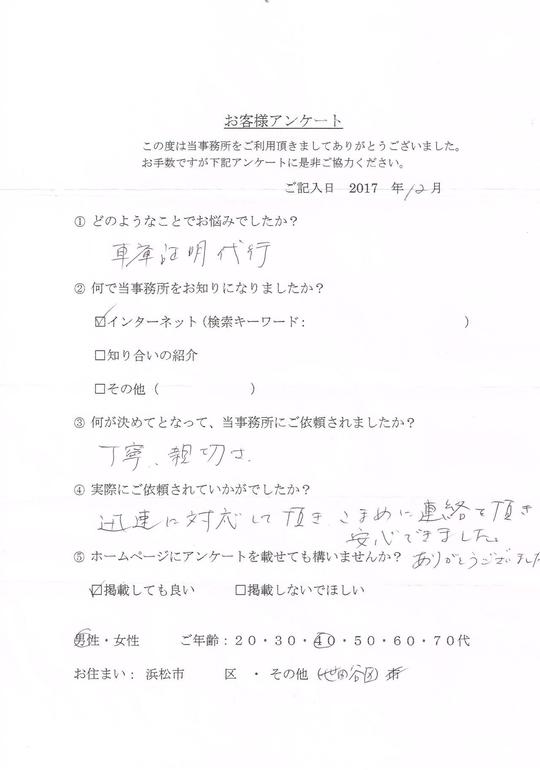 お客様アンケート
この度は当事務所をご利用頂きましてありがとうございました。
お手数ですが下記アンケートに是非ご協力ください。
ご記入日 2017 年12月
① どのようなことでお悩みでしたか?
車庫証明代行
② 何で当事務所をお知りになりましたか?
☑インターネット(検索キーワード: )
□知り合いの紹介
□その他( )
③ 何が決めてとなって、当事務所にご依頼されましたか?
丁寧、親切さ.
④ 実際にご依頼されていかがでしたか?
迅速に対応して頂き、こまめに連絡を頂き
安心できました。
ありがとうございました
⑤ ホームページにアンケートを載せても構いませんか?
☑掲載しても良い □掲載しないでほしい
男性・女性 ご年齢:20・30・40・50・60・70代
お住まい: 浜松市 区 ・ その他(世田谷区)市